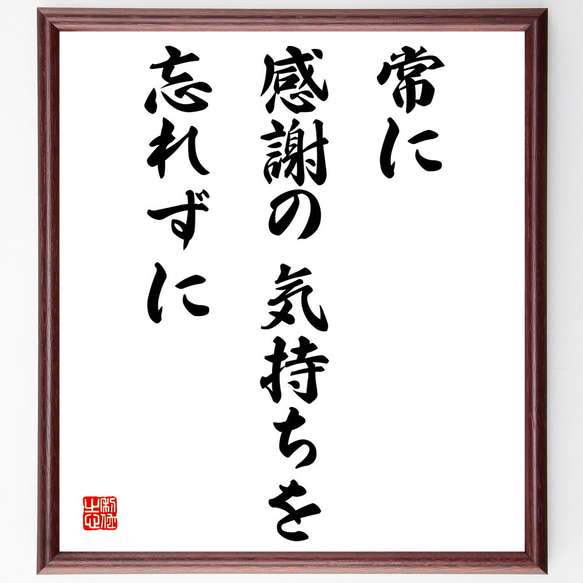 常に
感謝の気持ちを
忘れずに